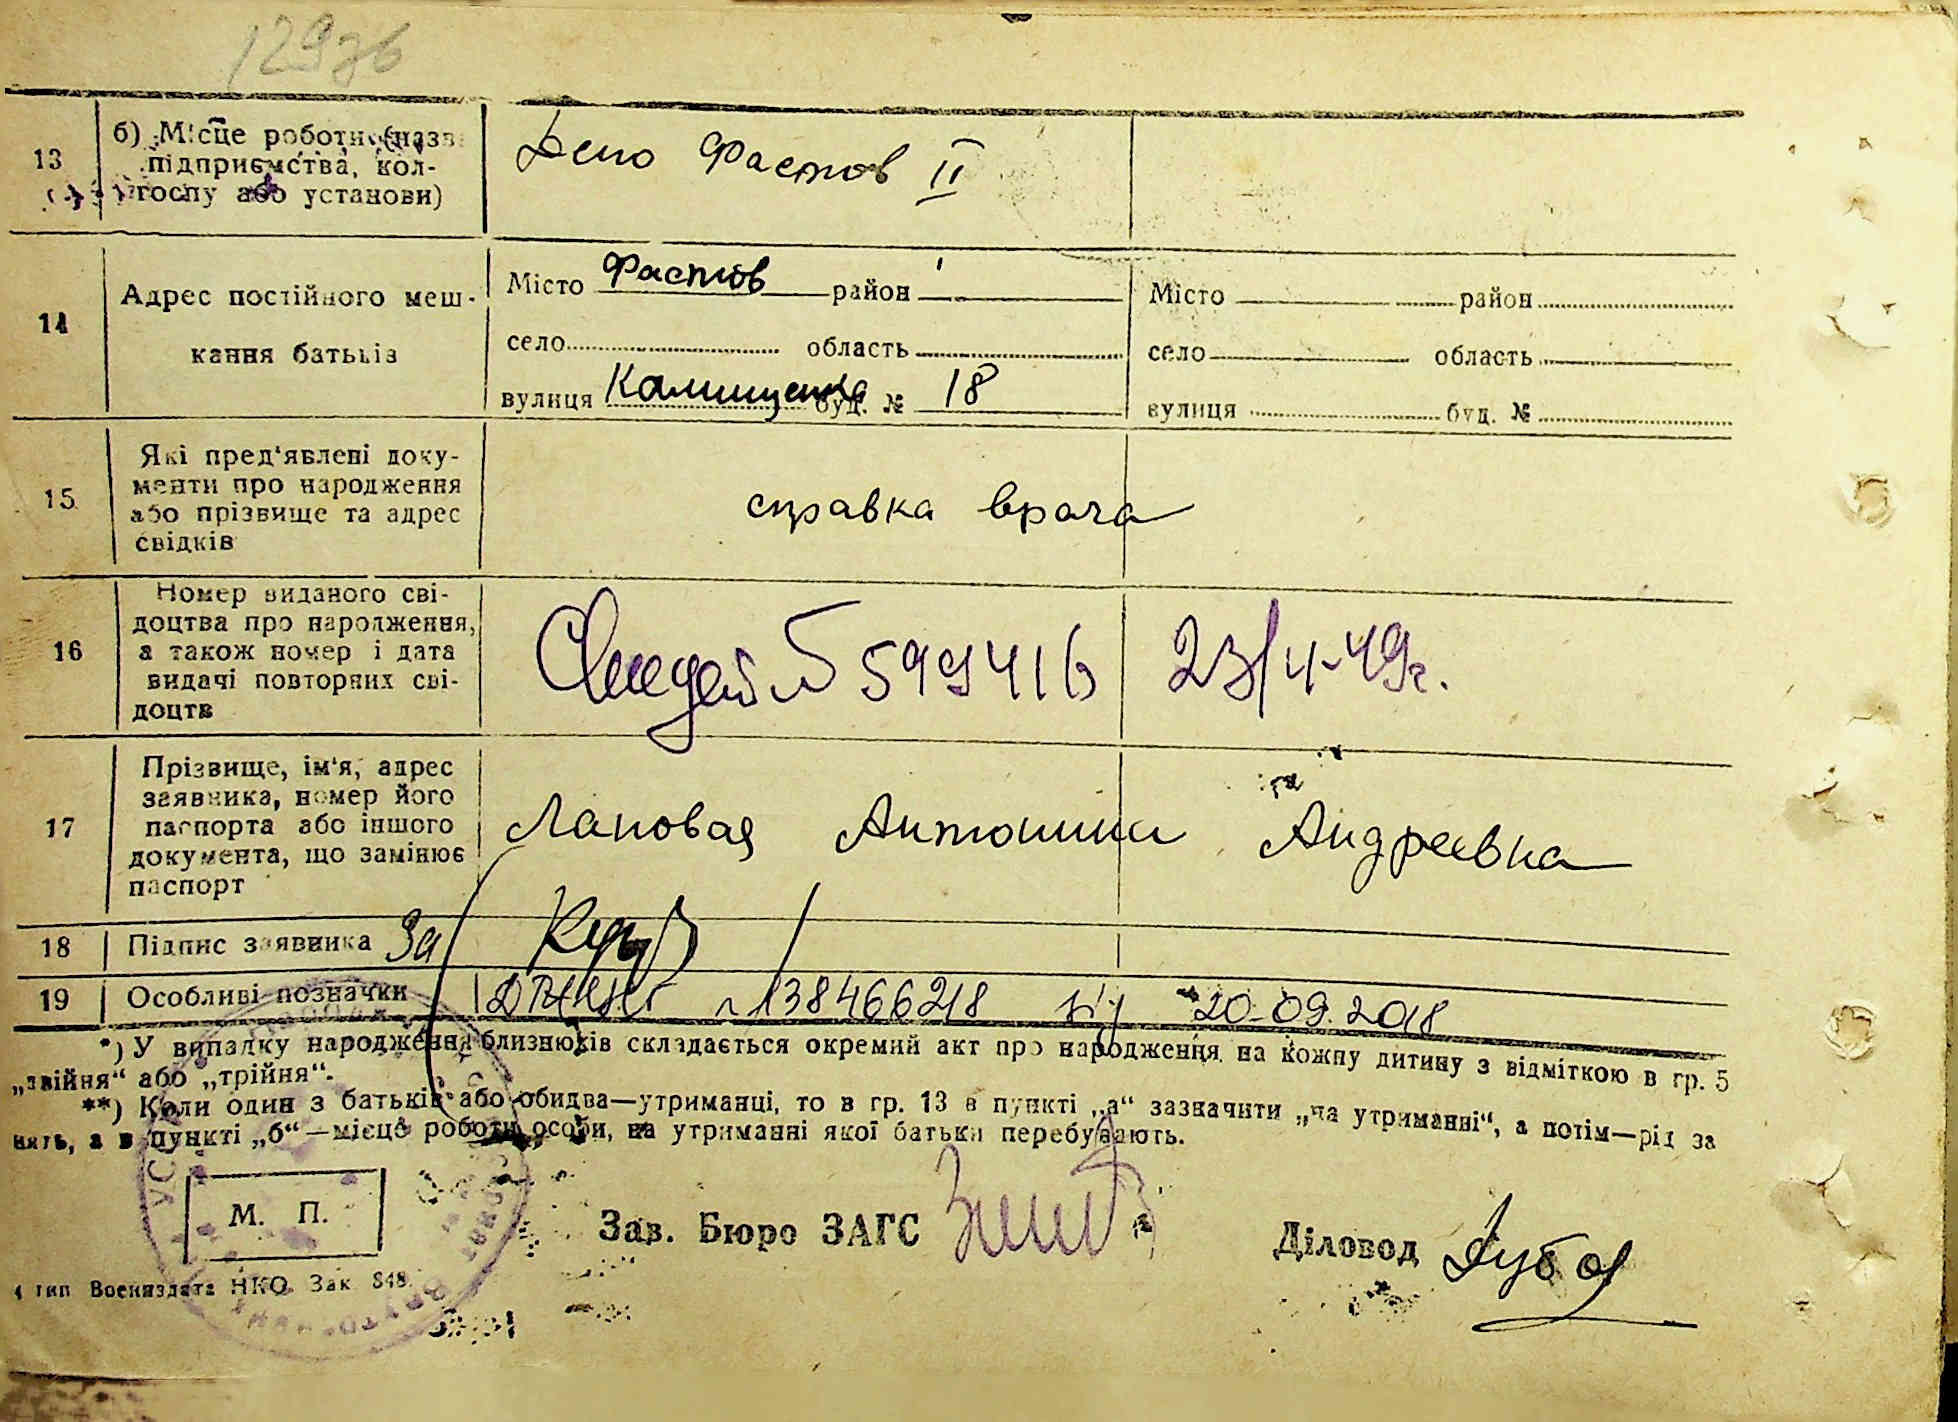 129зв
13 б) Місце роботи (назв
підприємства, кол-
госпу або установи)
Депо Фастов II
14 Адрес постійного меш-
кання батьків
Місто Фастов район
село область
вулиця Калищенка буд. № 18
Місто район
село область
вулиця буд. №
15 Які пред'явлені доку-
менти про народження
або прізвище та адрес
свідків
справка врача
16 Номер виданого сві-
доцтва про народження,
а також номер і дата
видачі повторних сві-
доцтв
599416 23/4-49г.
17 Прізвище, ім'я, адрес
заявника, номер його
паспорта або іншого
документа, що замінює
паспорт
Лаповая Антонина Андреевна
18 Підпис заявника За
19 Особливі позначки
138466218 від 20.09.2018
*) У випадку народження близнюків складається окремий акт про народження на кожну дитину з відміткою в гр. 5
„двійня“ або „трійня“.
**) Коли один з батьків або обидва—утриманці, то в гр. 13 в пункті „а“ зазначити „на утриманні“, а потім—рід за
нять, а в пункті „б“—місце роботи особи, на утриманні якої батьки перебувають.
М. П.
Зав. Бюро ЗАГС
Діловод
4 тип Воениздата НКО Зак 848